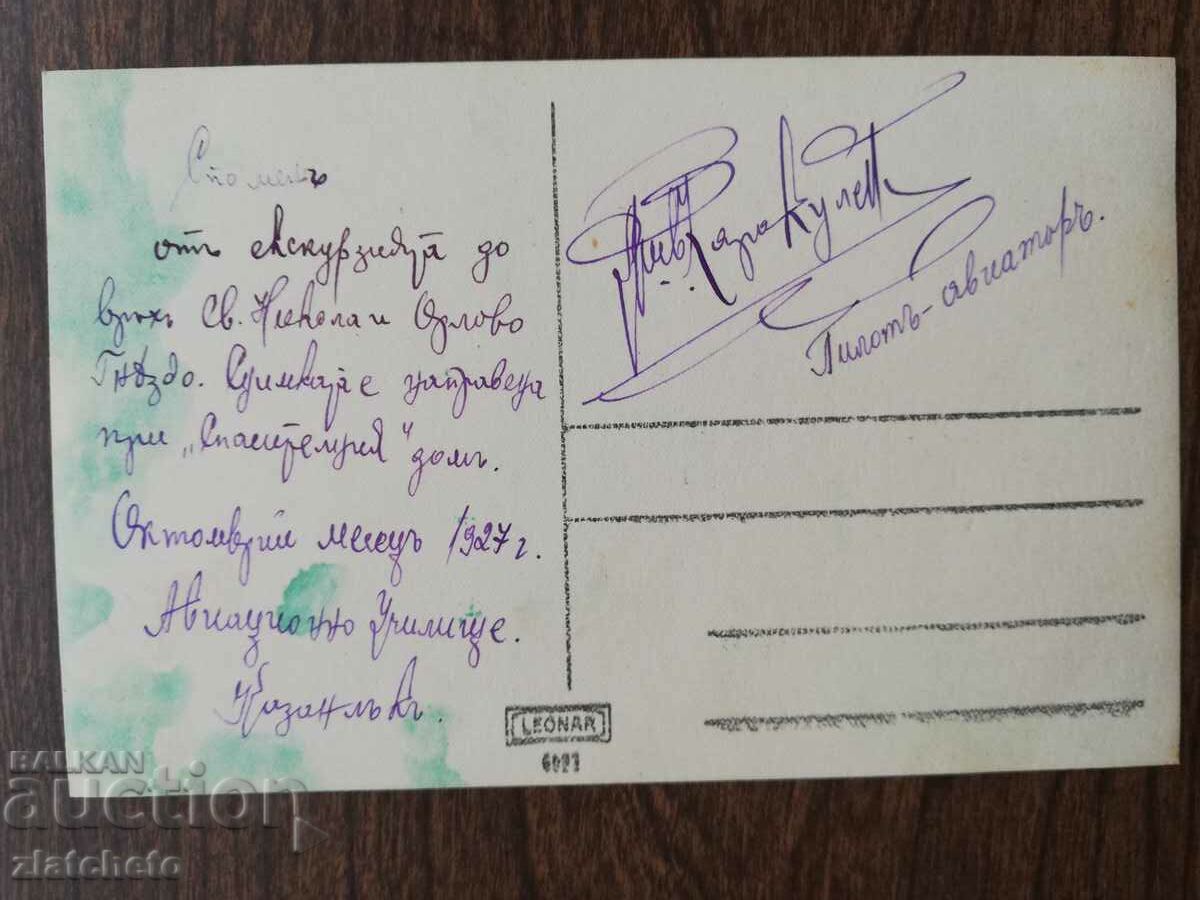 Споменъ
отъ екскурзията до
връхъ Св. Никола и Орлово
Гнѣздо. Снимката е направена
при „Спасителния" домъ.
Октомврий месецъ 1927 г.
Авиационно Училище.
Казанлъкъ.
Пилотъ-авиаторъ.
LEONAR
BALKAN
auction
zlatcheto